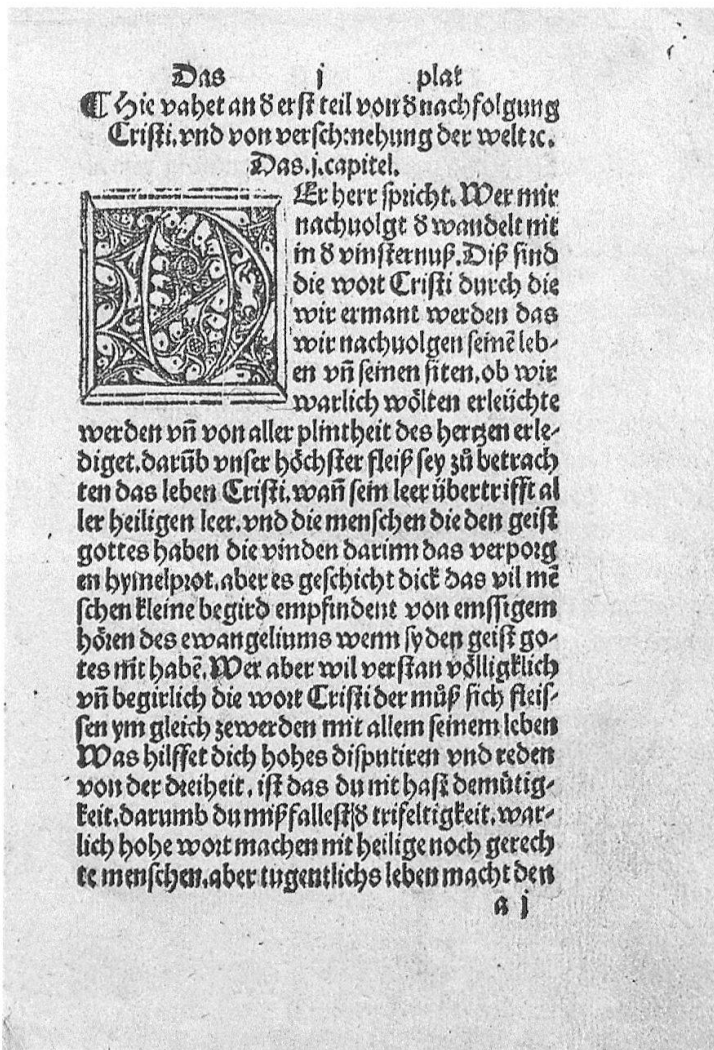 Das j plat
¶ Hie vahet an d᷑ erſt teil von d᷑ nachfolgung
Criſti. vnd von verſchmehung der welt ꝛc.
Das .j. capitel.
DEr herr ſpricht. Wer mir
nachuolgt d᷑ wandelt nit
in d᷑ vinſternuß. Diß ſind
die wort Criſti durch die
wir ermant werden das
wir nachuolgen ſeinē leb-
en vñ ſeinen ſiten. ob wir
warlich wo̊lten erleüchte
werden vñ von aller plintheit des hertzen erle-
diget. darūb vnſer höchſter fleiß ſey zů betrach
ten das leben Criſti. wañ ſein leer übertrifft al
ler heiligen leer. vnd die menſchen die den geiſt
gottes haben die vinden darinn das verporg
en hymelprot. aber es geſchicht dick das vil mē
ſchen kleine begird empfindent von emſſigem
hören des ewangeliums wenn ſy den geiſt go-
tes nit habē. Wer aber wil verſtan völligklich
vñ begirlich die wort Criſti der můß ſich fleiſ-
ſen ym gleich zewerden mit allem ſeinem leben
Was hilffet dich hohes diſputiren vnd reden
von der dreiheit. iſt das du nit haſt demütig-
keit. darumb du mißfalleſt d᷑ trifeltigkeit. war-
lich hohe wort machen nit heilige noch gerech
te menſchen. aber tugentlichs leben macht den
a j